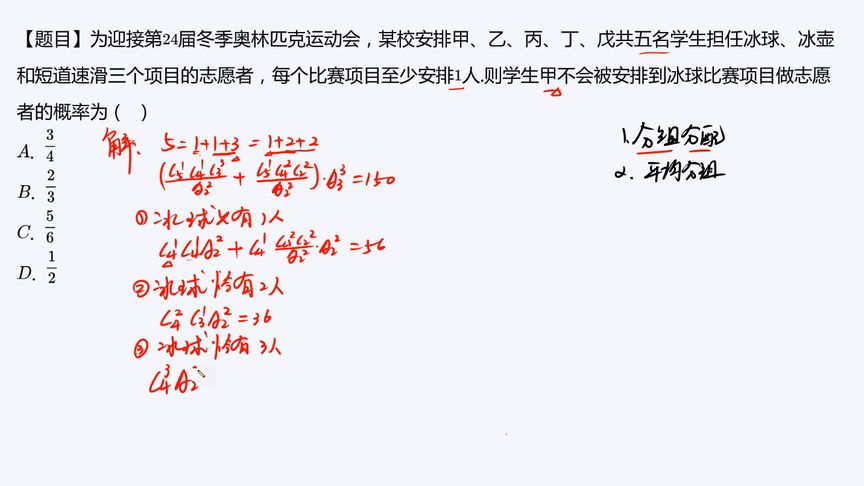 【题目】为迎接第24届冬季奥林匹克运动会，某校安排甲、乙、丙、丁、戊共五名学生担任冰球、冰壶
和短道速滑三个项目的志愿者，每个比赛项目至少安排1人.则学生甲不会被安排到冰球比赛项目做志愿
者的概率为（ ）
A. 3/4
B. 2/3
C. 5/6
D. 1/2
解. 5=1+1+3=1+2+2
(C₅¹C₄¹C₃³/A₂² + C₅¹C₄²C₂²/A₂²)·A₃³=150
①冰球只有1人
C₄¹C₄¹A₂²+C₄¹ C₄²C₂²/A₂²·A₂²=56
②冰球恰有2人
C₄²C₃¹A₂²=36
③冰球恰有3人
C₄³A₂²
1.分组分配
2.平均分组